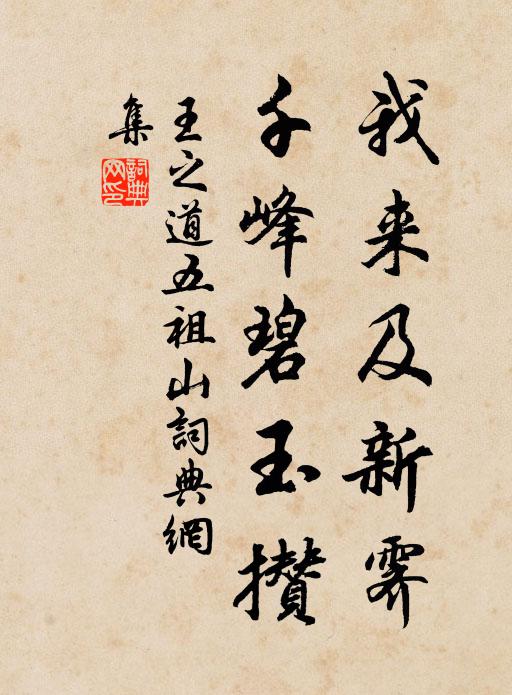 我来及新霁
千峰碧玉攒
王之道五祖山詞典網
集
詞典
网印